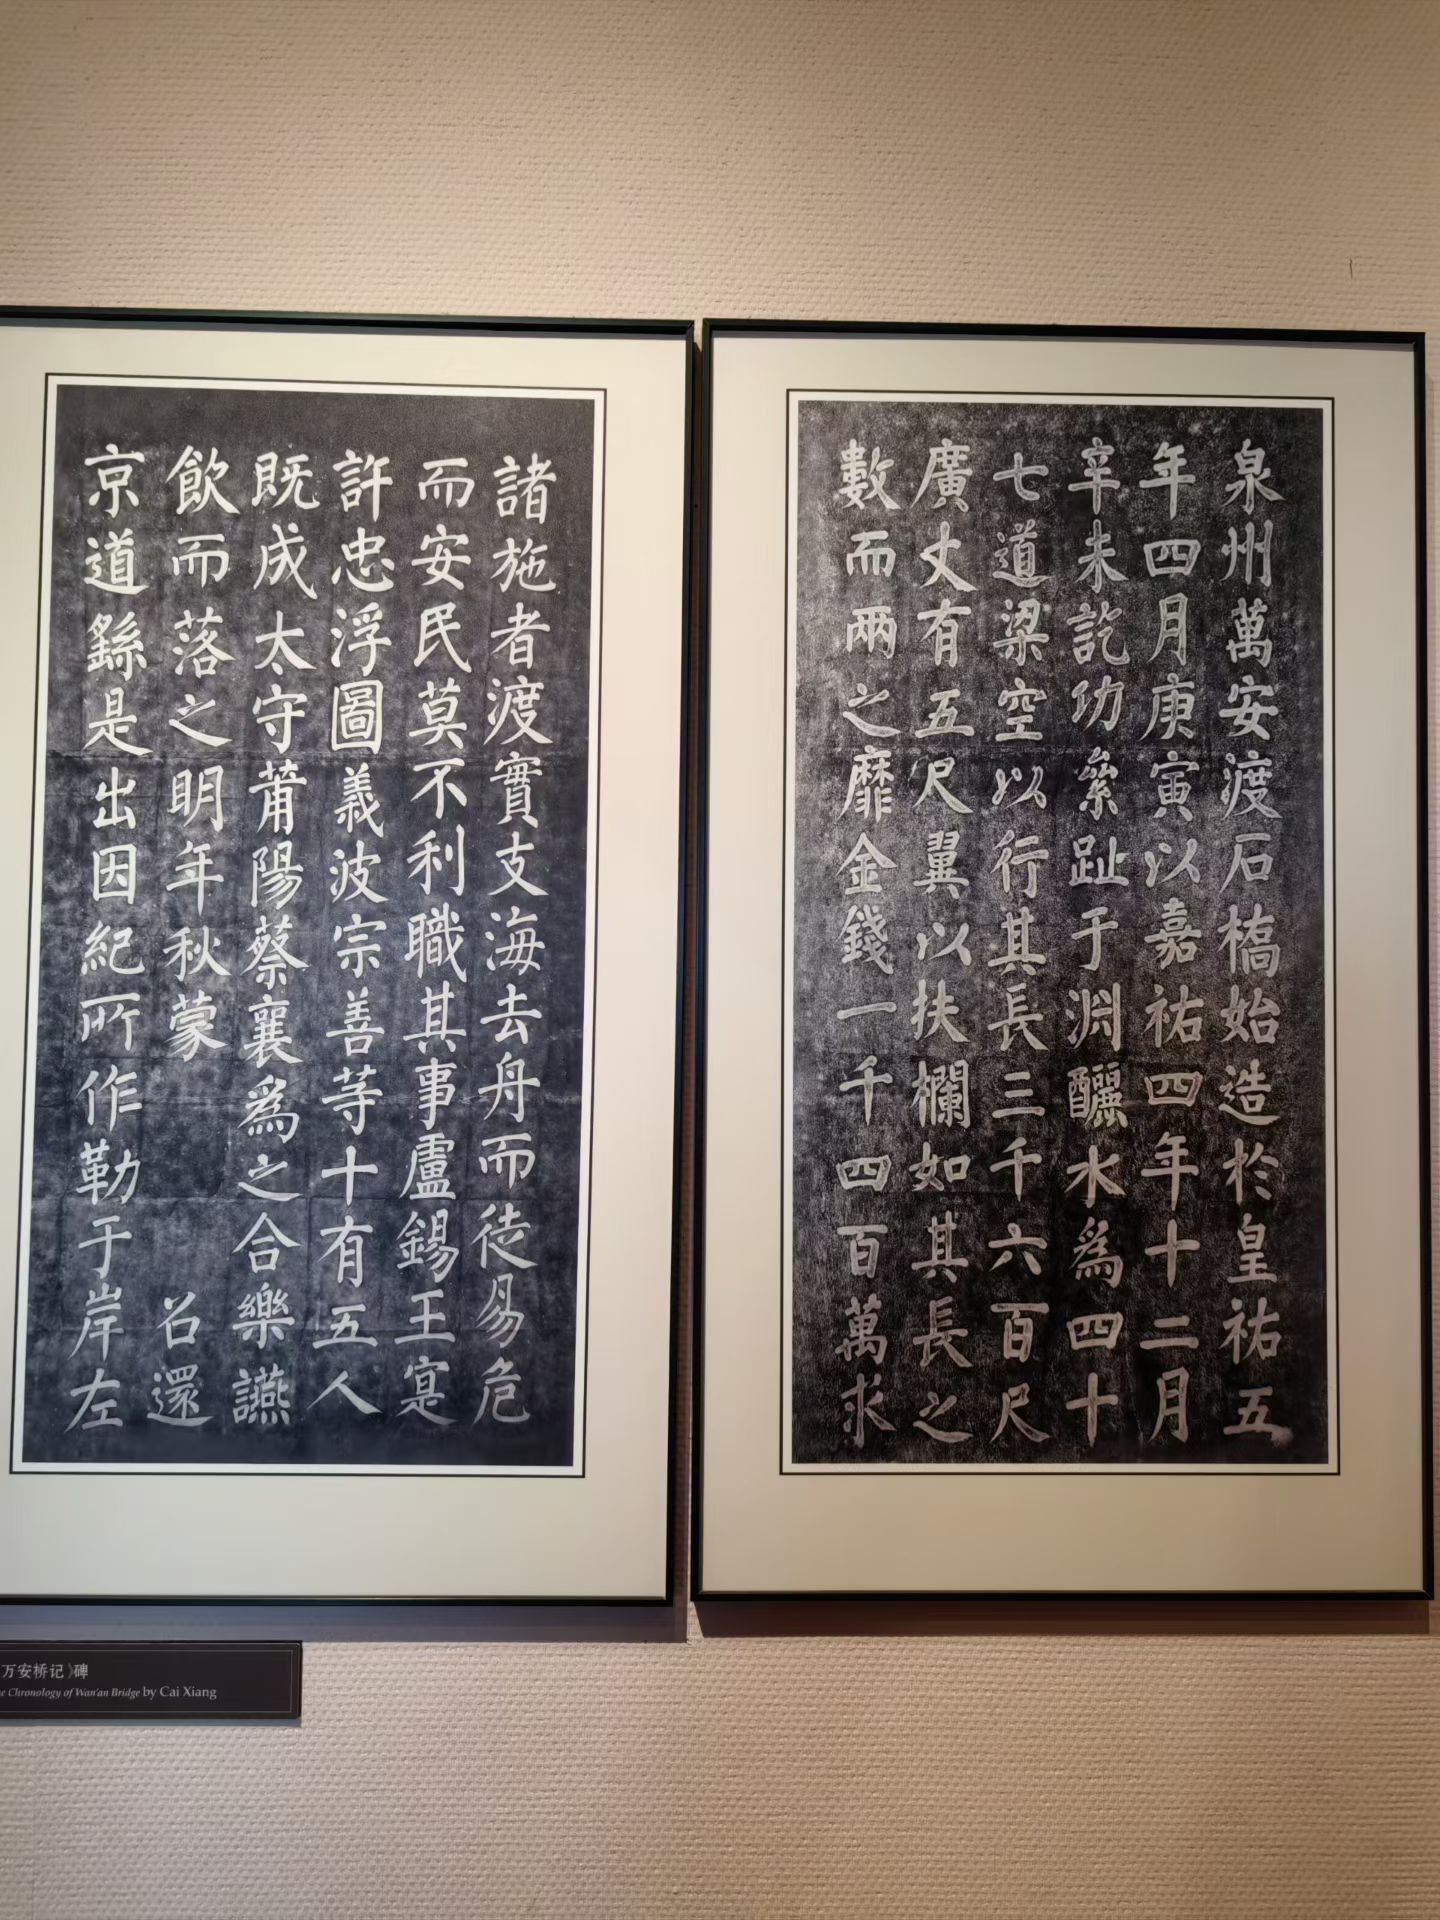 泉州萬安渡石橋始造於皇祐五
年四月庚寅以嘉祐四年十二月
辛未訖功絫趾于淵釃水為四十
七道梁空以行其長三千六百尺
廣丈有五尺翼以扶欄如其長之
數而兩之靡金錢一千四百萬求
諸施者渡實支海去舟而徒易危
而安民莫不利職其事盧錫王寔
許忠浮圖義波宗善等十有五人
既成太守莆陽蔡襄為之合樂讌
飲而落之明年秋蒙 召還
京道繇是出因紀所作勒于岸左
万安桥记》碑
Chronology of Wan'an Bridge by Cai Xiang